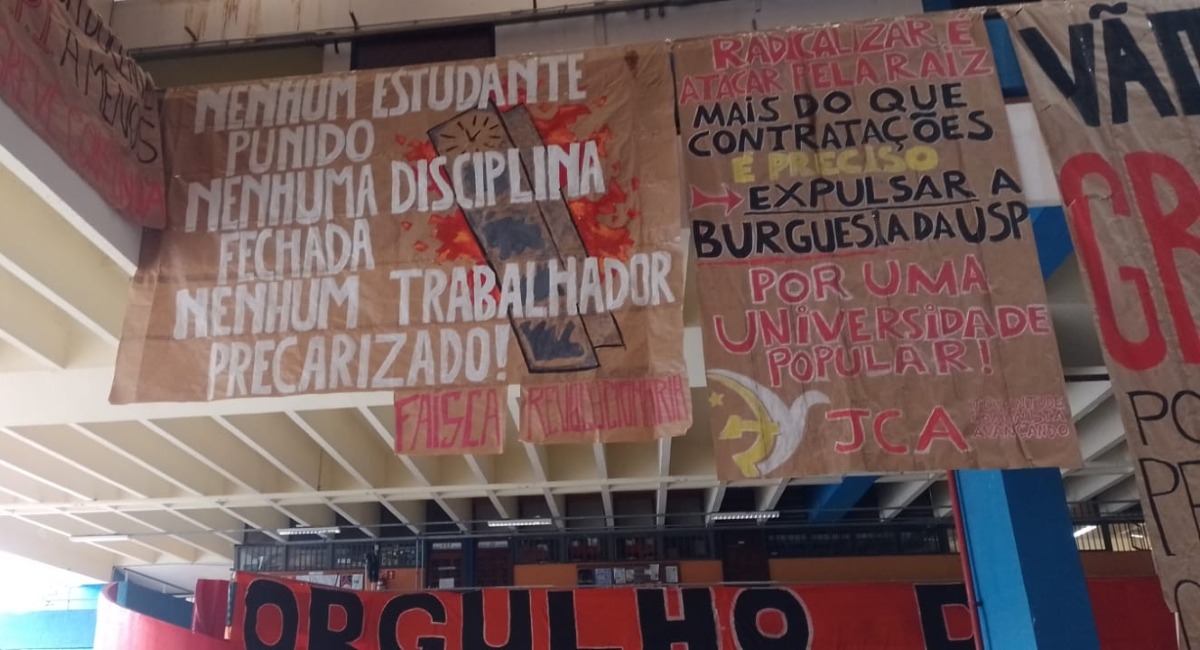 A MENOS
GREVE
NENHUM ESTUDANTE
PUNIDO
NENHUMA DISCIPLINA
FECHADA
NENHUM TRABALHADOR
PRECARIZADO!
FAÍSCA REVOLUCIONÁRIA
RADICALIZAR É
ATACAR PELA RAIZ
MAIS DO QUE
CONTRATAÇÕES
É PRECISO
EXPULSAR A
BURGUESIA DA USP
POR UMA
UNIVERSIDADE
POPULAR!
JCA
AVANÇANDO
VÃ
GR
PO
PE
ORGULHO D